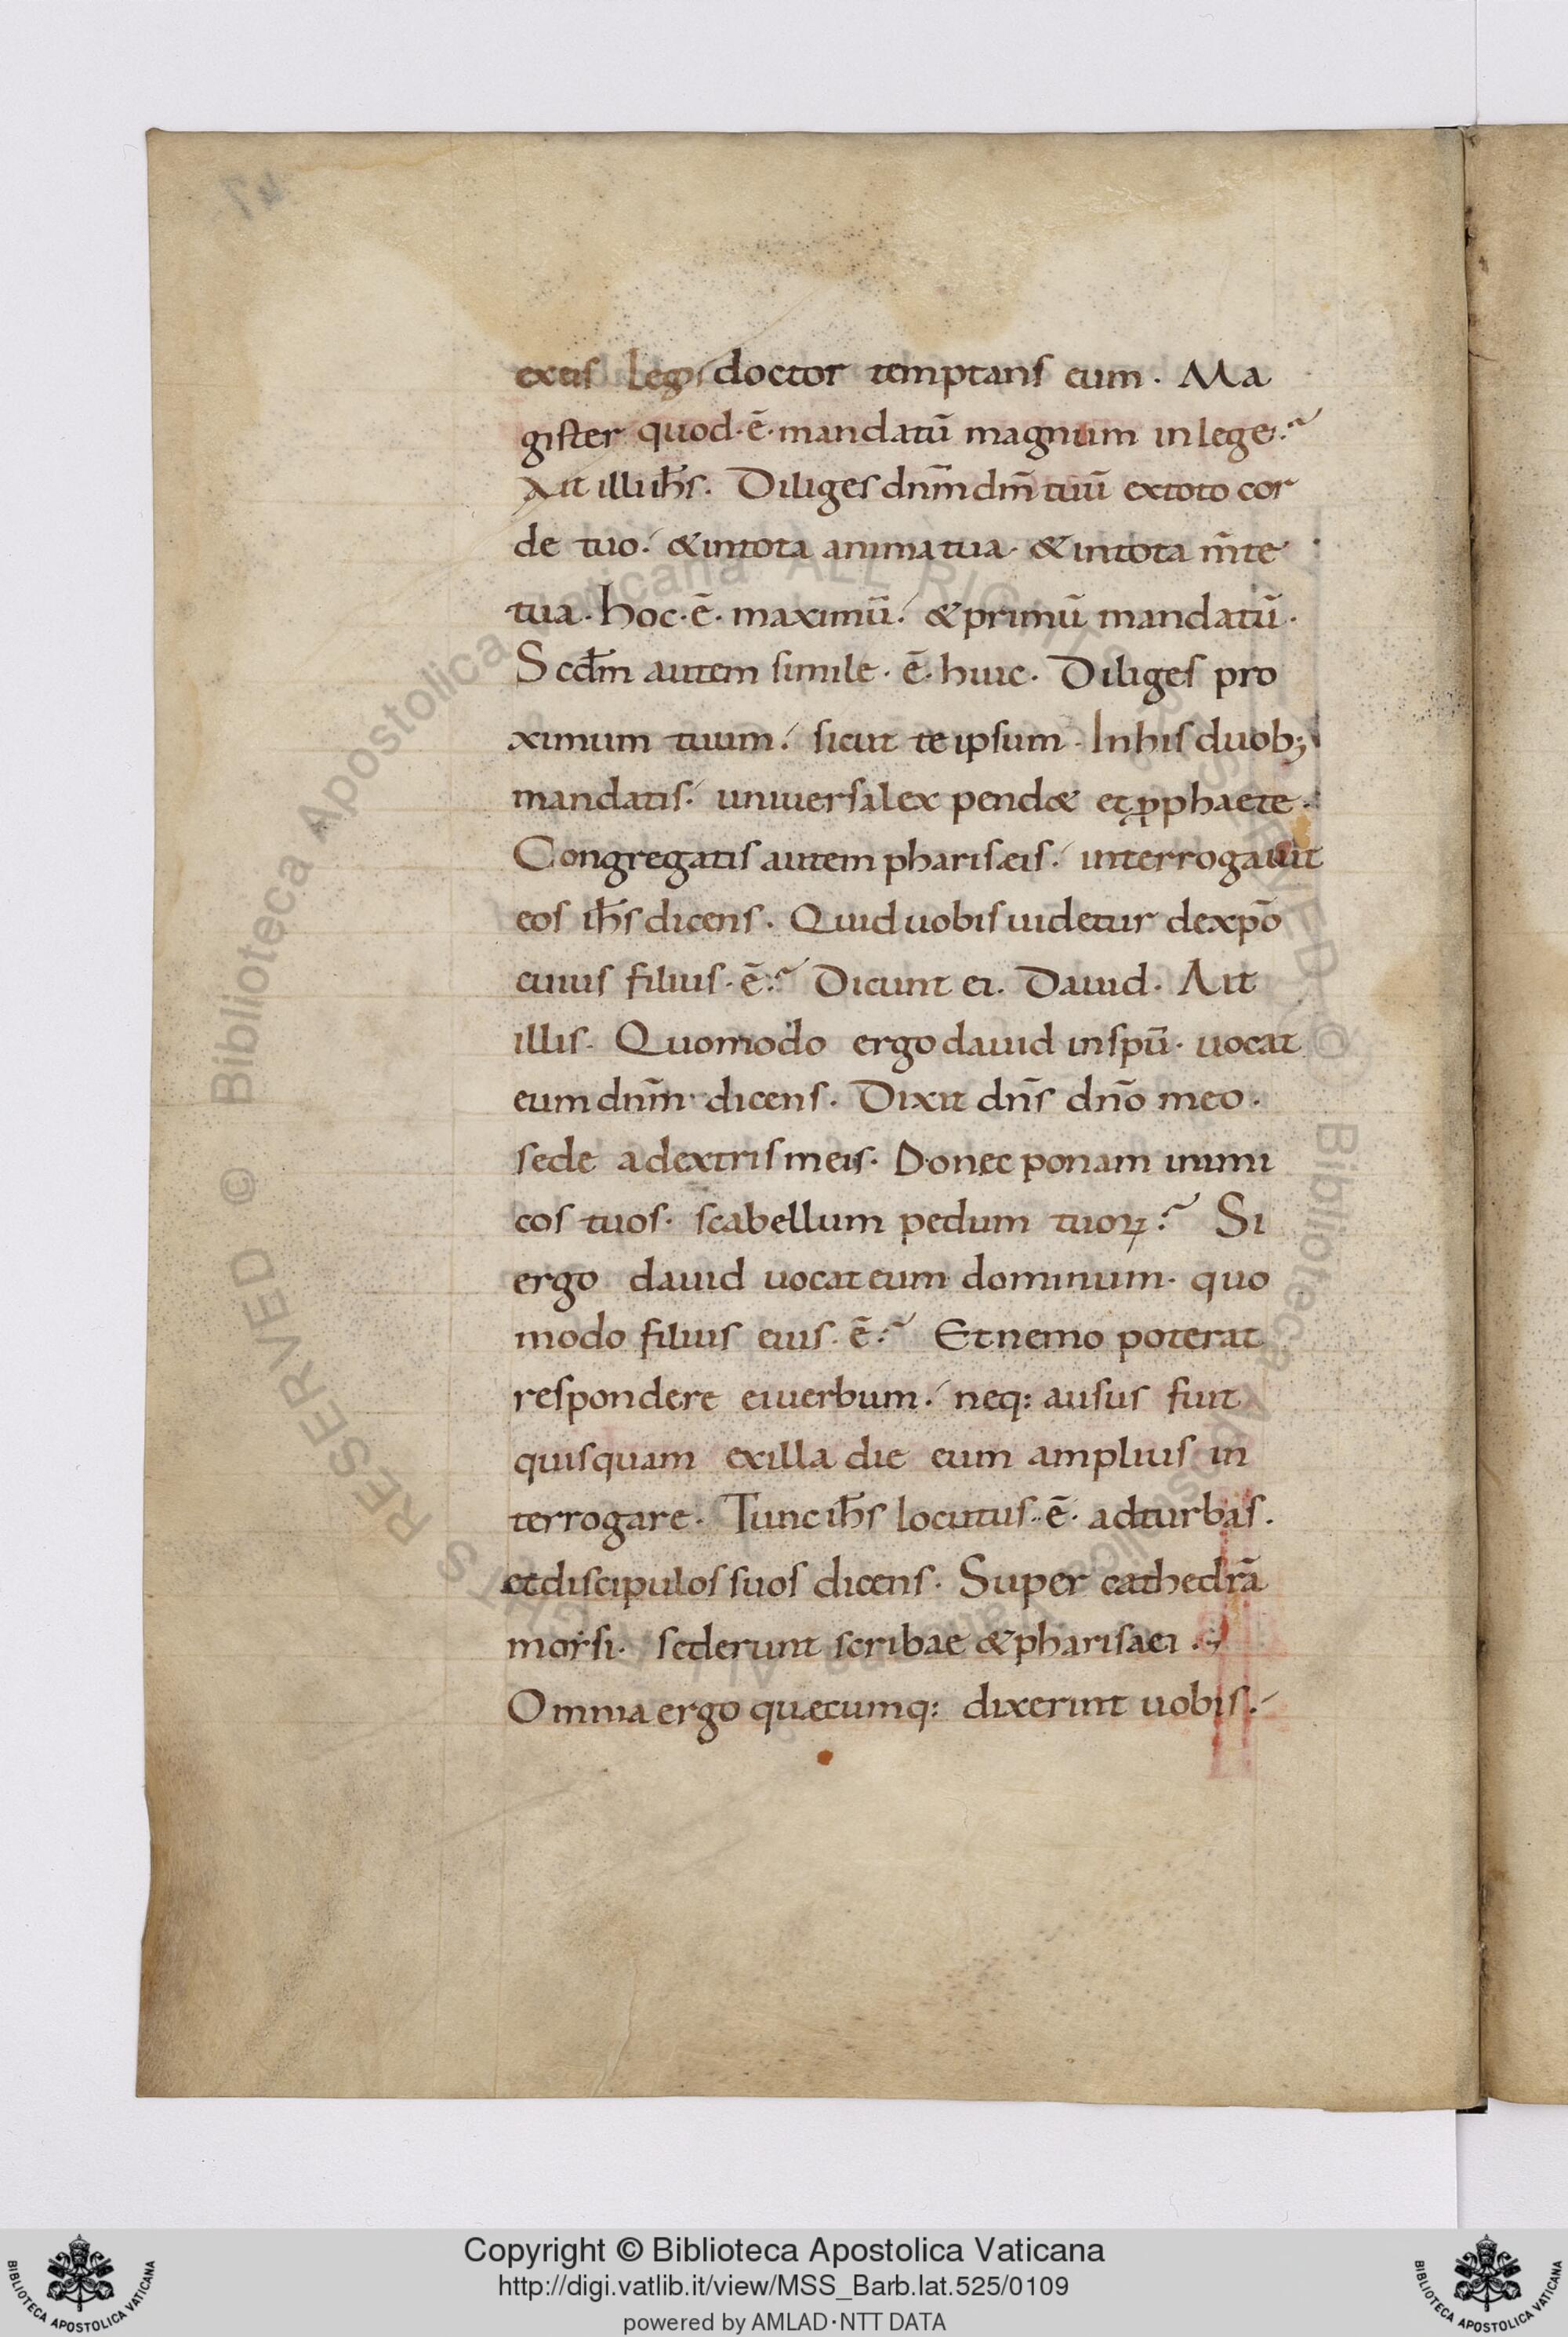 exeis legis doctor temptans eum. Ma
gister quod·ē·mandatū magnum inlege?
Ait illi ih̄s. Diliges dn̄m dm̄ tuū extoto cor
de tuo. &intota anima tua· &intota m̄te
tua. hoc·ē· maximū. &primū mandatū.
Scd̄m autem simile·ē· huic. Diliges pro
ximum tuum. sicut te ipsum. In his duob;
mandatis. uniuersa lex pend& et ꝓphaete.
Congregatis autem pharisæis. interrogauit
eos ih̄s dicens. Quid uobis uidetur dexp̄o
cuius filius·ē? Dicunt ei. Dauid. Ait
illis. Quomodo ergo dauid inspū· uocat
eum dn̄m dicens. Dixit dn̄s dn̄o meo.
sede adextris meis. Donec ponam inimi
cos tuos. scabellum pedum tuoꝝ? Si
ergo dauid uocat eum dominum. quo
modo filius eius·ē? Et nemo poterat
respondere ei uerbum. neq: ausus fuit
quisquam exilla die eum amplius in
terrogare. Tunc ih̄s locutus·ē· adturbas.
et discipulos suos dicens. Super cathedrā
morsi. sederunt scribae &pharisaei.
Omnia ergo quæcumq: dixerint uobis.
Biblioteca Apostolica Vaticana ALL RIGHTS RESERVED ©
Biblioteca Apostolica Vaticana ALL RIGHTS RESERVED ©
Copyright © Biblioteca Apostolica Vaticana
http://digi.vatlib.it/view/MSS_Barb.lat.525/0109
powered by AMLAD·NTT DATA
BIBLIOTECA APOSTOLICA VATICANA
BIBLIOTECA APOSTOLICA VATICANA